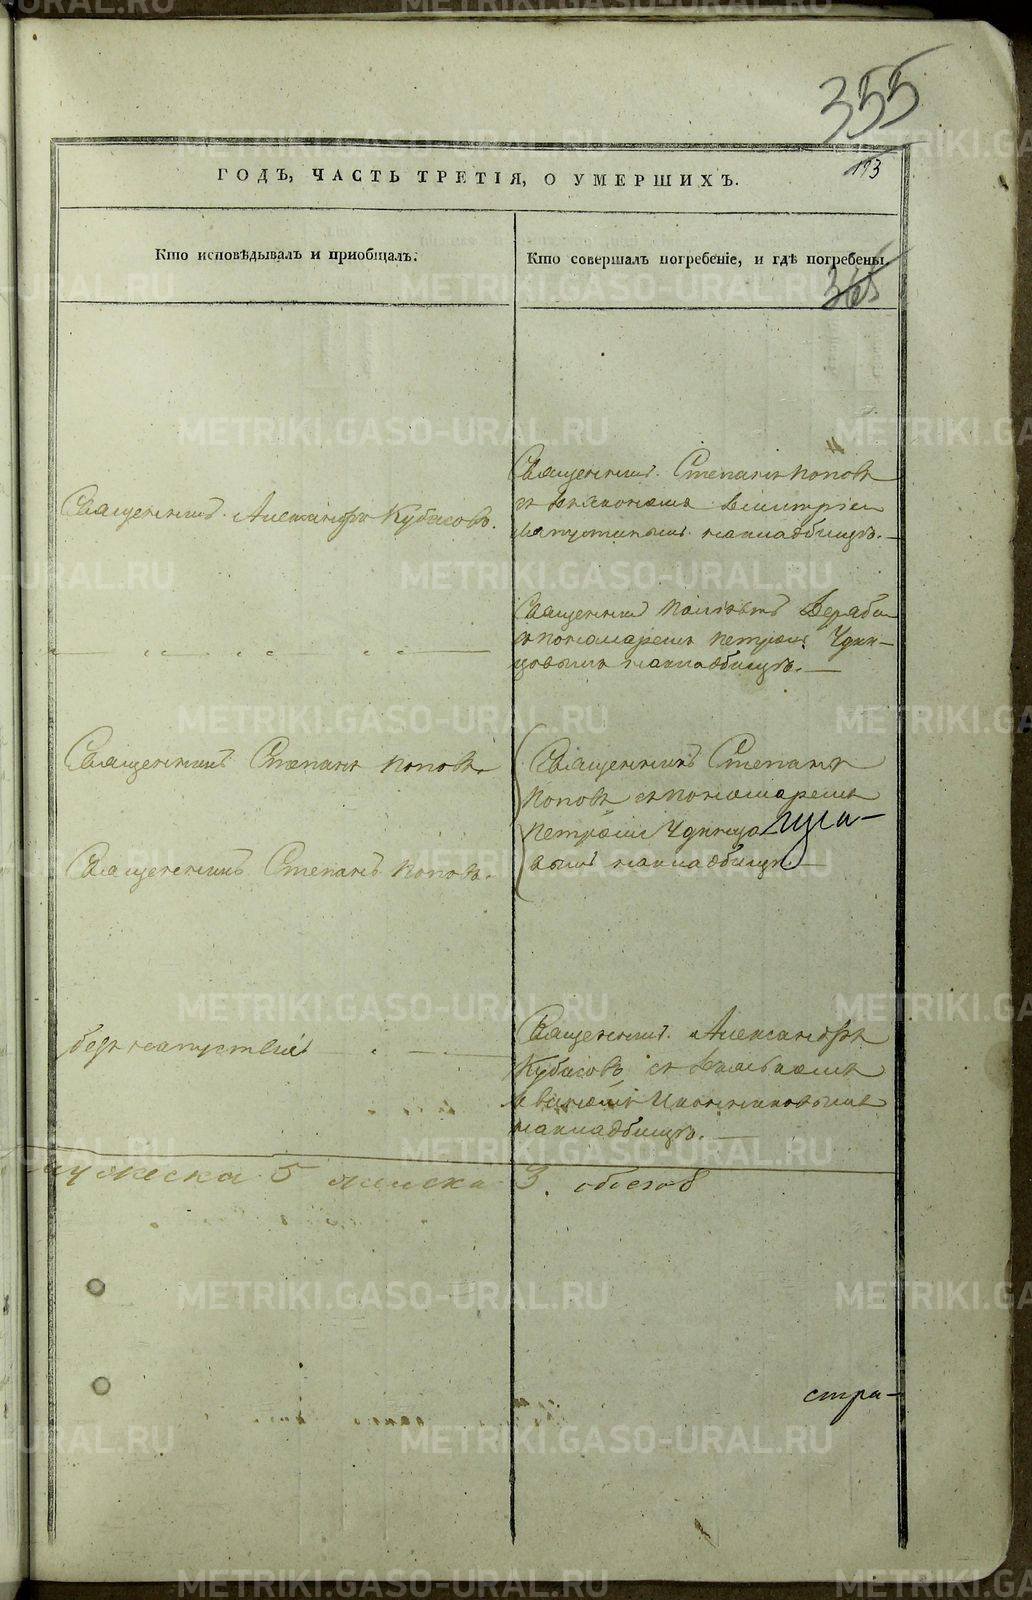 355
193
ГОДЪ, ЧАСТЬ ТРЕТІЯ, О УМЕРШИХЪ.
Кто исповѣдывалъ и приобщалъ.
Кто совершалъ погребеніе, и гдѣ погребены.
365
Священникъ Александръ Кубасовъ.
Священникъ Степанъ Поповъ
съ Діакономъ Димитріем
на кладбищѣ.
Священник
съ пономаремъ Петромъ Удин-
цовымъ на кладбищѣ.
Священникъ Степанъ Поповъ
Священникъ Степанъ
Поповъ съ пономаремъ
Петромъ Удинцо
вымъ на кладбищѣ
Священникъ Степанъ Поповъ.
безъ напутствія
Священникъ Александръ
Кубасовъ съ
Иконниковымъ
на кладбищѣ.
мужеска 5 женска 3. обоего 8
стра-
METRIKI.GASO-URAL.RU